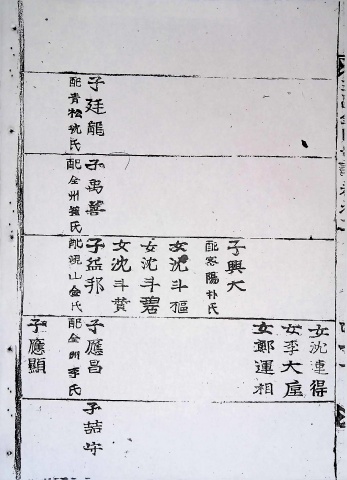 子廷龍
配青松沈氏
子禹善
配全州崔氏
子興大
配密陽朴氏
女沈斗樞
女沈斗碧
女沈斗贊
子益邦
配金氏
女沈連得
女李大
女鄭運相
子應昌
配全州李氏
子應顯
子喆